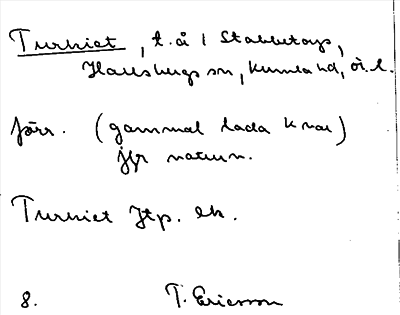 Turkiet, t.å i Stabbetorp,
Hallsbergs sn, Kumla hd, ör. l.
förr. (gammal lada kvar)
jfr natmn.
Turkiet Htp. ek.
8. T. Ericsson